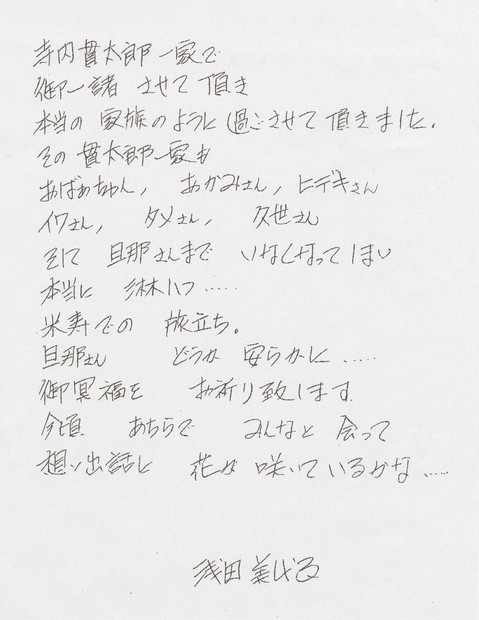 寺内貫太郎一家で
御一諸 させて 頂き
本当の 家族のように 過ごさせて 頂きました.
その 貫太郎一家も
おばあちゃん, おかみさん, ヒデキさん
イワさん, タメさん, 久世さん
そして 旦那さんまで いなくなってしまい
本当に 淋しい‥‥‥
米寿での 旅立ち。
旦那さん どうか 安らかに‥‥‥
御冥福を お祈り致します
今頃 あちらで みんなと 会って
想い出話に 花が 咲いているかな‥‥‥
浅田美代子